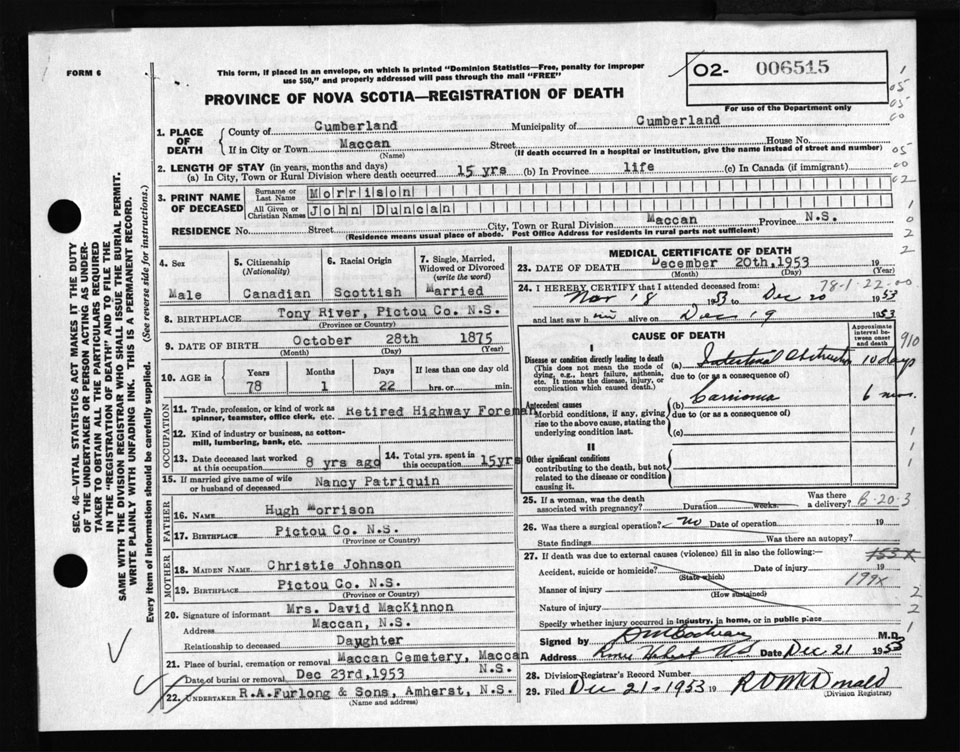 FORM 6
This form, if placed in an envelope, on which is printed "Dominion Statistics—Free, penalty for improper
use $50," and properly addressed will pass through the mail "FREE"
PROVINCE OF NOVA SCOTIA—REGISTRATION OF DEATH
O2- 006515
For use of the Department only
1. PLACE OF DEATH
County of Cumberland Municipality of Cumberland
If in City or Town Maccan Street House No.
(Name) (If death occurred in a hospital or institution, give the name instead of street and number)
2. LENGTH OF STAY (in years, months and days)
(a) In City, Town or Rural Division where death occurred 15 yrs (b) In Province life (c) In Canada (if immigrant)
3. PRINT NAME OF DECEASED
Surname or Last Name Morrison
All Given or Christian Names John Duncan
RESIDENCE No. Street City, Town or Rural Division Maccan Province N.S.
(Residence means usual place of abode. Post Office Address for residents in rural parts not sufficient)
4. Sex Male
5. Citizenship (Nationality) Canadian
6. Racial Origin Scottish
7. Single, Married, Widowed or Divorced (write the word) Married
8. BIRTHPLACE Tony River, Pictou Co. N.S.
(Province or Country)
9. DATE OF BIRTH October 28th 1875
(Month) (Day) (Year)
10. AGE in Years 78 Months 1 Days 22 If less than one day old hrs. or min.
OCCUPATION
11. Trade, profession, or kind of work as spinner, teamster, office clerk, etc. Retired Highway Foreman
12. Kind of industry or business, as cotton-mill, lumbering, bank, etc.
13. Date deceased last worked at this occupation 8 yrs ago
14. Total yrs. spent in this occupation 15yrs
15. If married give name of wife or husband of deceased Nancy Patriquin
FATHER
16. NAME Hugh Morrison
17. BIRTHPLACE Pictou Co. N.S.
(Province or Country)
MOTHER
18. MAIDEN NAME Christie Johnson
19. BIRTHPLACE Pictou Co. N.S.
(Province or Country)
20. Signature of informant Mrs. David MacKinnon
Address Maccan, N.S.
Relationship to deceased Daughter
21. Place of burial, cremation or removal Maccan Cemetery, Maccan N.S.
Date of burial or removal Dec 23rd,1953
22. UNDERTAKER R.A.Furlong & Sons, Amherst, N.S.
(Name and address)
MEDICAL CERTIFICATE OF DEATH
23. DATE OF DEATH December 20th,1953 19
(Month) (Day) (Year)
78-1-22-00
24. I HEREBY CERTIFY that I attended deceased from:
Nov 18 1953 to Dec 20 1953
and last saw him alive on Dec 19 1953
CAUSE OF DEATH
Approximate interval between onset and death
910
I
Disease or condition directly leading to death
(This does not mean the mode of dying, e.g., heart failure, asthenia, etc. It means the disease, injury, or complication which caused death.)
(a) Intestinal Obstruction 10 days
due to (or as a consequence of)
Antecedent causes
Morbid conditions, if any, giving rise to the above cause, stating the underlying condition last.
(b) 6 mos.
due to (or as a consequence of)
(c)
II
Other significant conditions contributing to the death, but not related to the disease or condition causing it.
25. If a woman, was the death associated with pregnancy? Duration weeks. Was there a delivery? B-20-3
26. Was there a surgical operation? no Date of operation 19
State findings Was there an autopsy?
27. If death was due to external causes (violence) fill in also the following:— 153X
Accident, suicide or homicide? Date of injury 19
(State which)
199X
Manner of injury
(How sustained)
Nature of injury
Specify whether injury occurred in industry, in home, or in public place
Signed by M.D.
Address N.S. Date Dec 21 1953
28. Division Registrar's Record Number
29. Filed Dec 21-1953 19
(Division Registrar)
SEC. 46—VITAL STATISTICS ACT MAKES IT THE DUTY
OF THE UNDERTAKER OR PERSON ACTING AS UNDERTAKER TO OBTAIN ALL THE PARTICULARS REQUIRED
IN THE "REGISTRATION OF DEATH" AND TO FILE THE
SAME WITH THE DIVISION REGISTRAR WHO SHALL ISSUE THE BURIAL PERMIT.
WRITE PLAINLY WITH UNFADING INK. THIS IS A PERMANENT RECORD.
Every item of information should be carefully supplied. (See reverse side for instructions.)